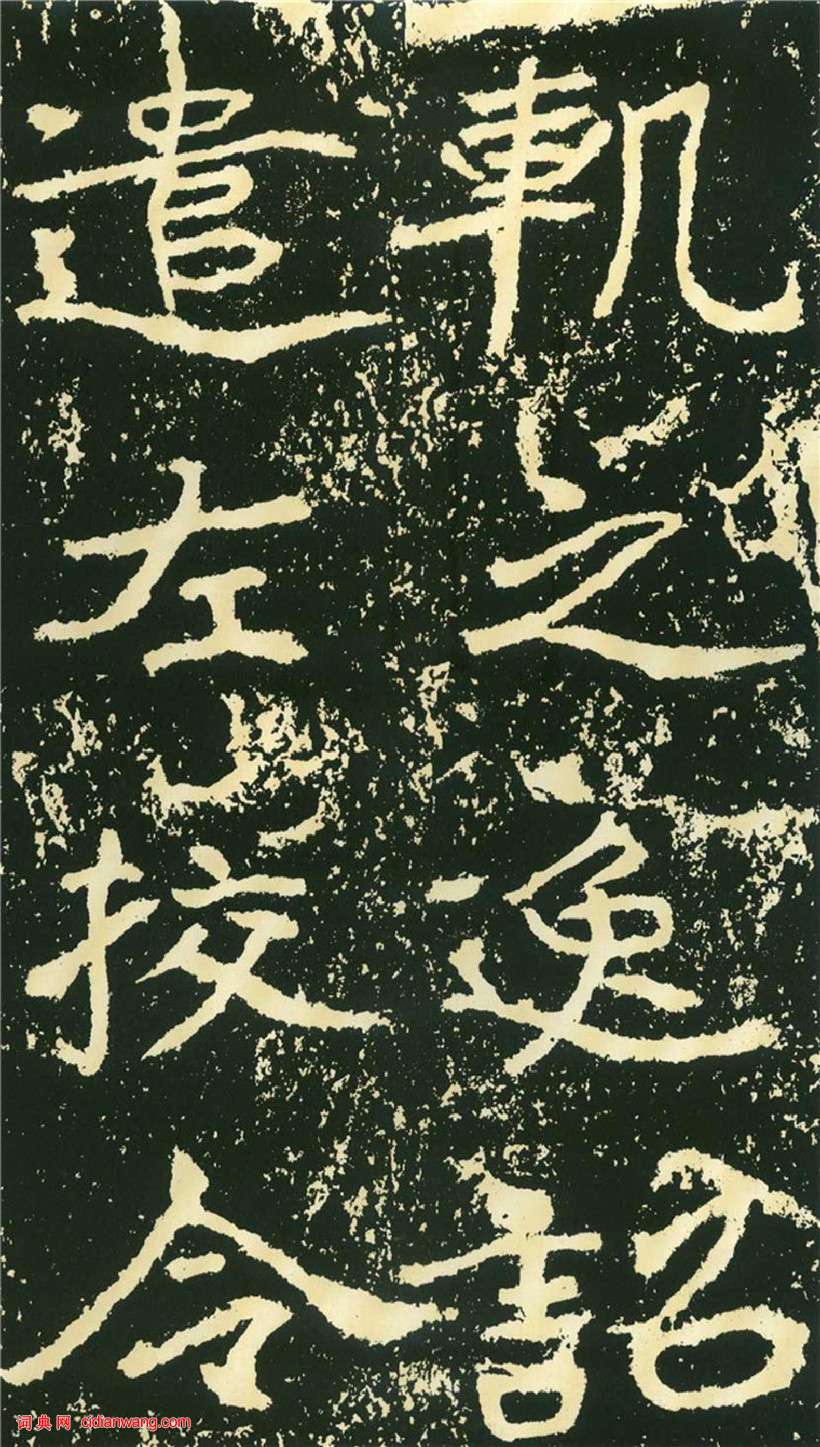 軌之逸詔
遣左校令
词典网:cidianwang.com